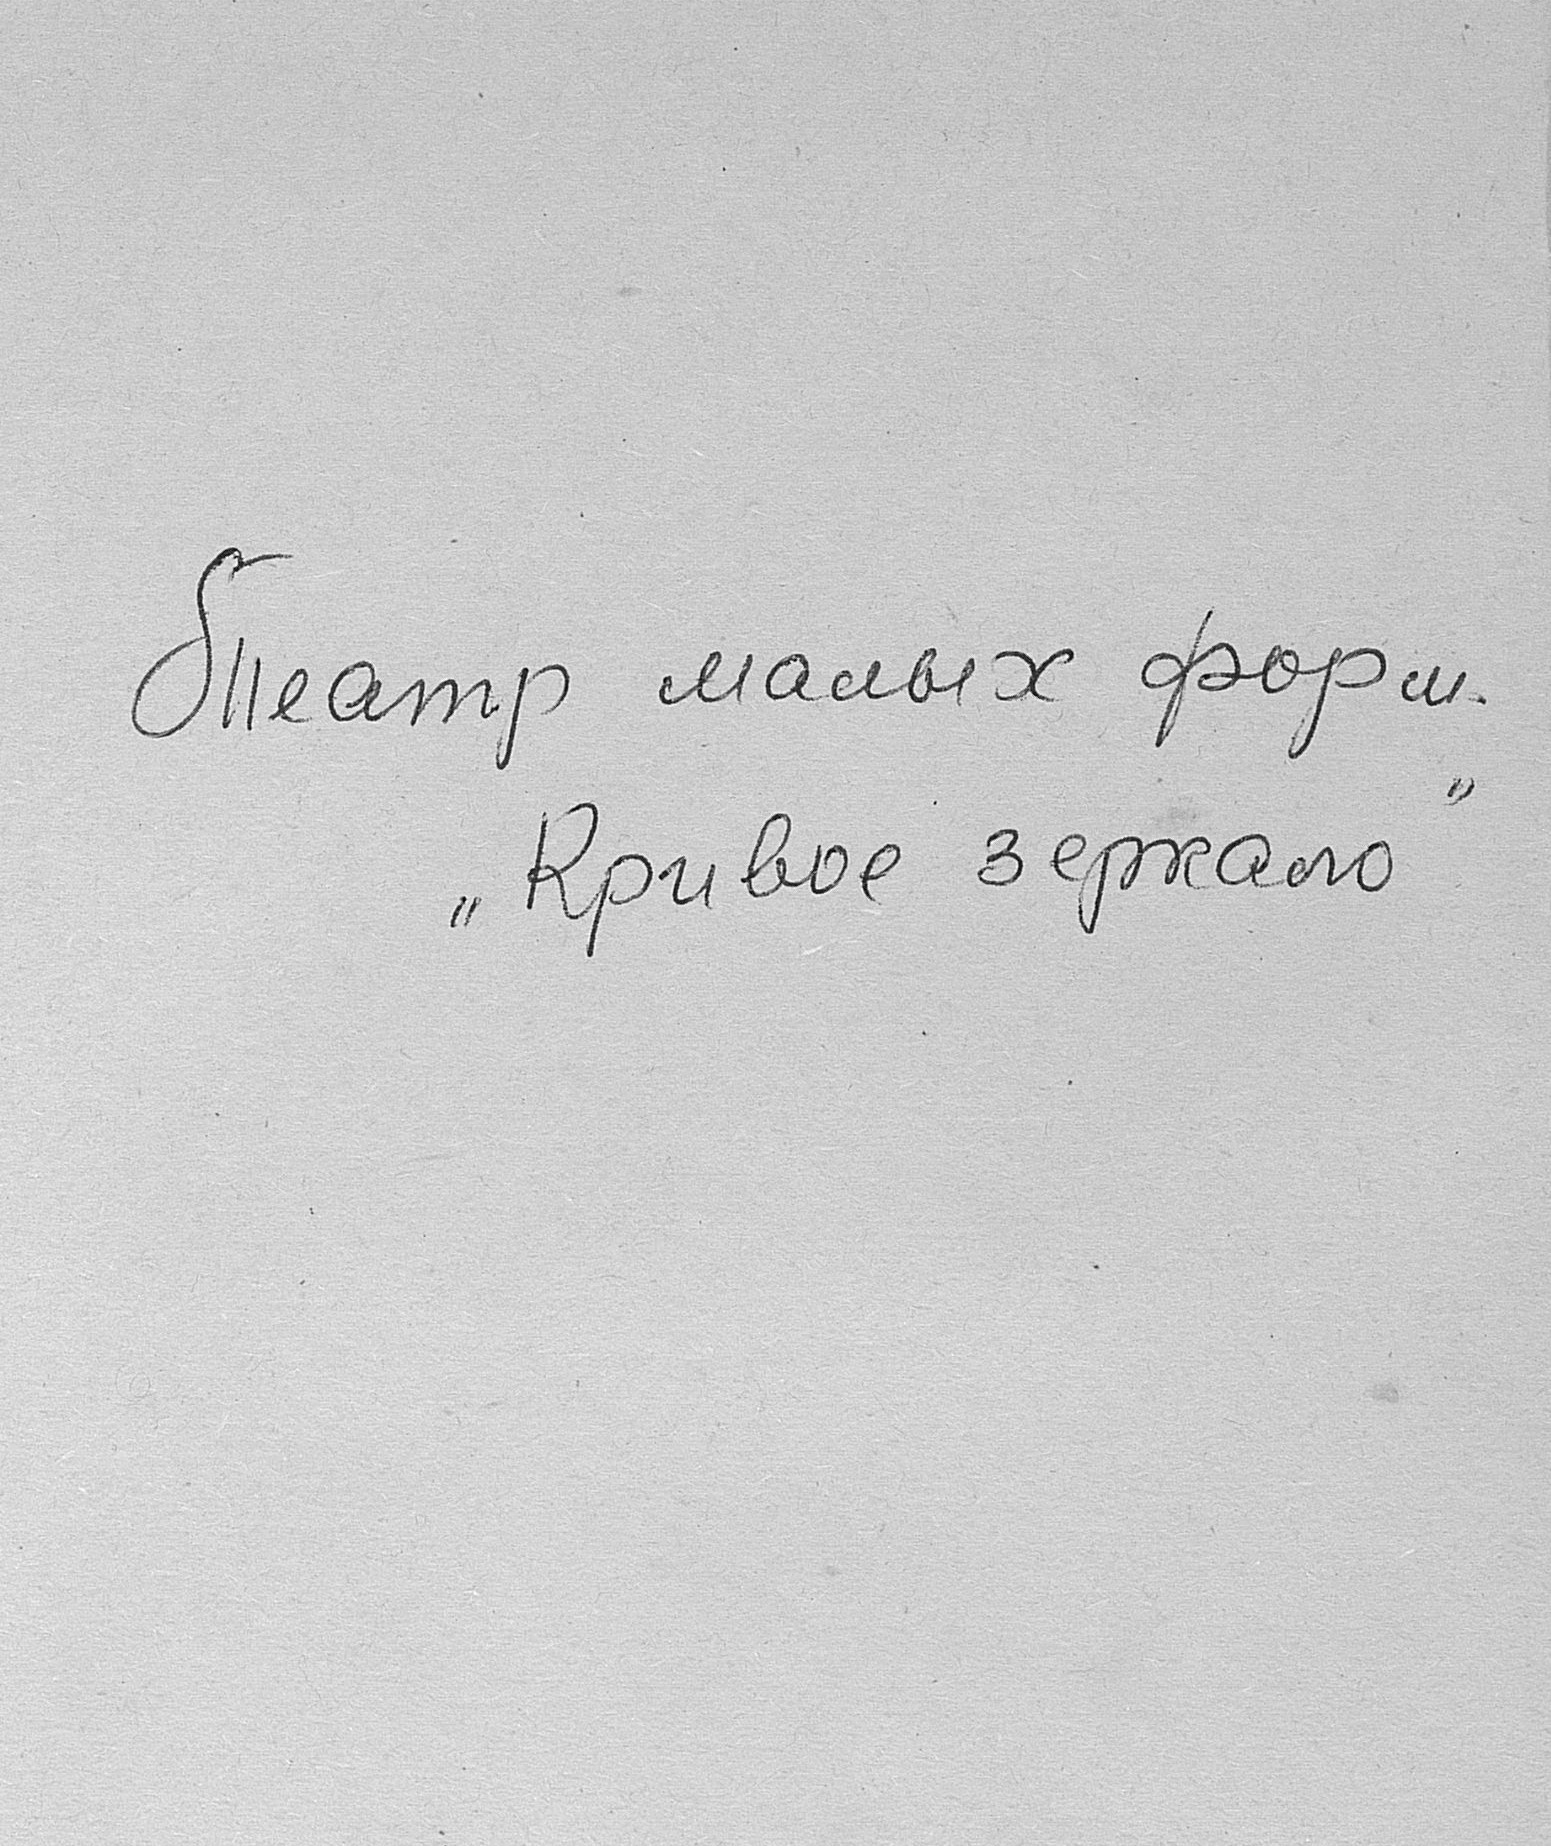 Театр малых форм.
„Кривое зеркало"